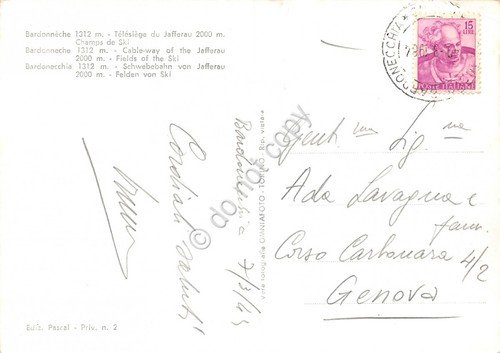 Bardonnèche 1312 m. - Télésiège du Jafferau 2000 m.
Champs de Ski
Bardonecchia 1312 m. - Cable-way of the Jafferau
2000 m. - Fields of the Ski
Bardonecchia 1312 m. - Schwebebahn von Jafferau
2000 m. - Felden von Ski
15
LIRE
POSTE ITALIANE
BARDONECCHIA
Gent.ma Sig.na
Ada Lavagna e
fam.
Corso Carbonara 4/2
Genova
Bardonecchia 7/3/65
Cordiali saluti
Vere fotografie OMNIAFOTO - TORINO - Rip. vietata
Ediz. Pascal - Priv. n. 2
© do not copy